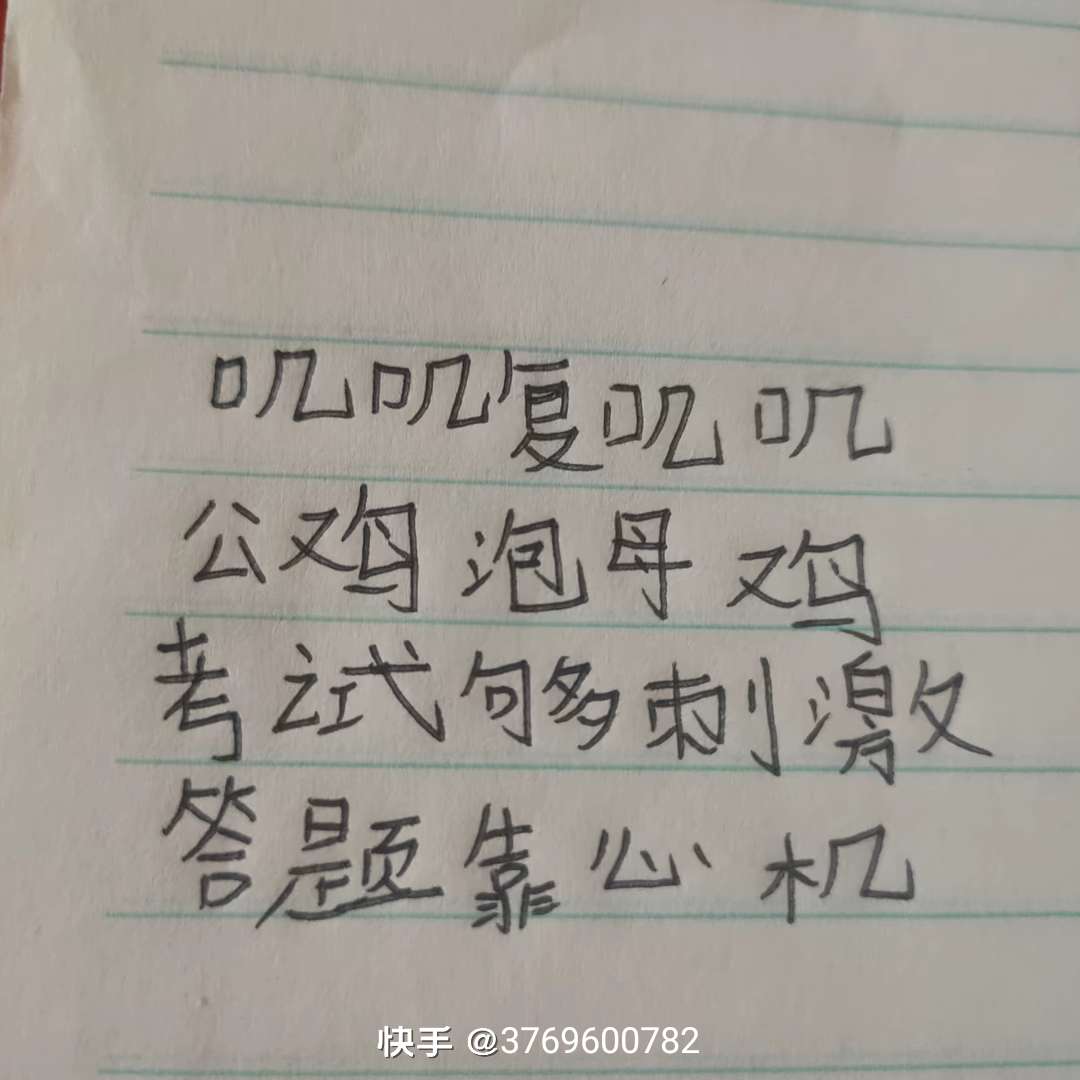 叽叽复叽叽
公鸡泡母鸡
考试够刺激
答题靠心机
快手 @3769600782